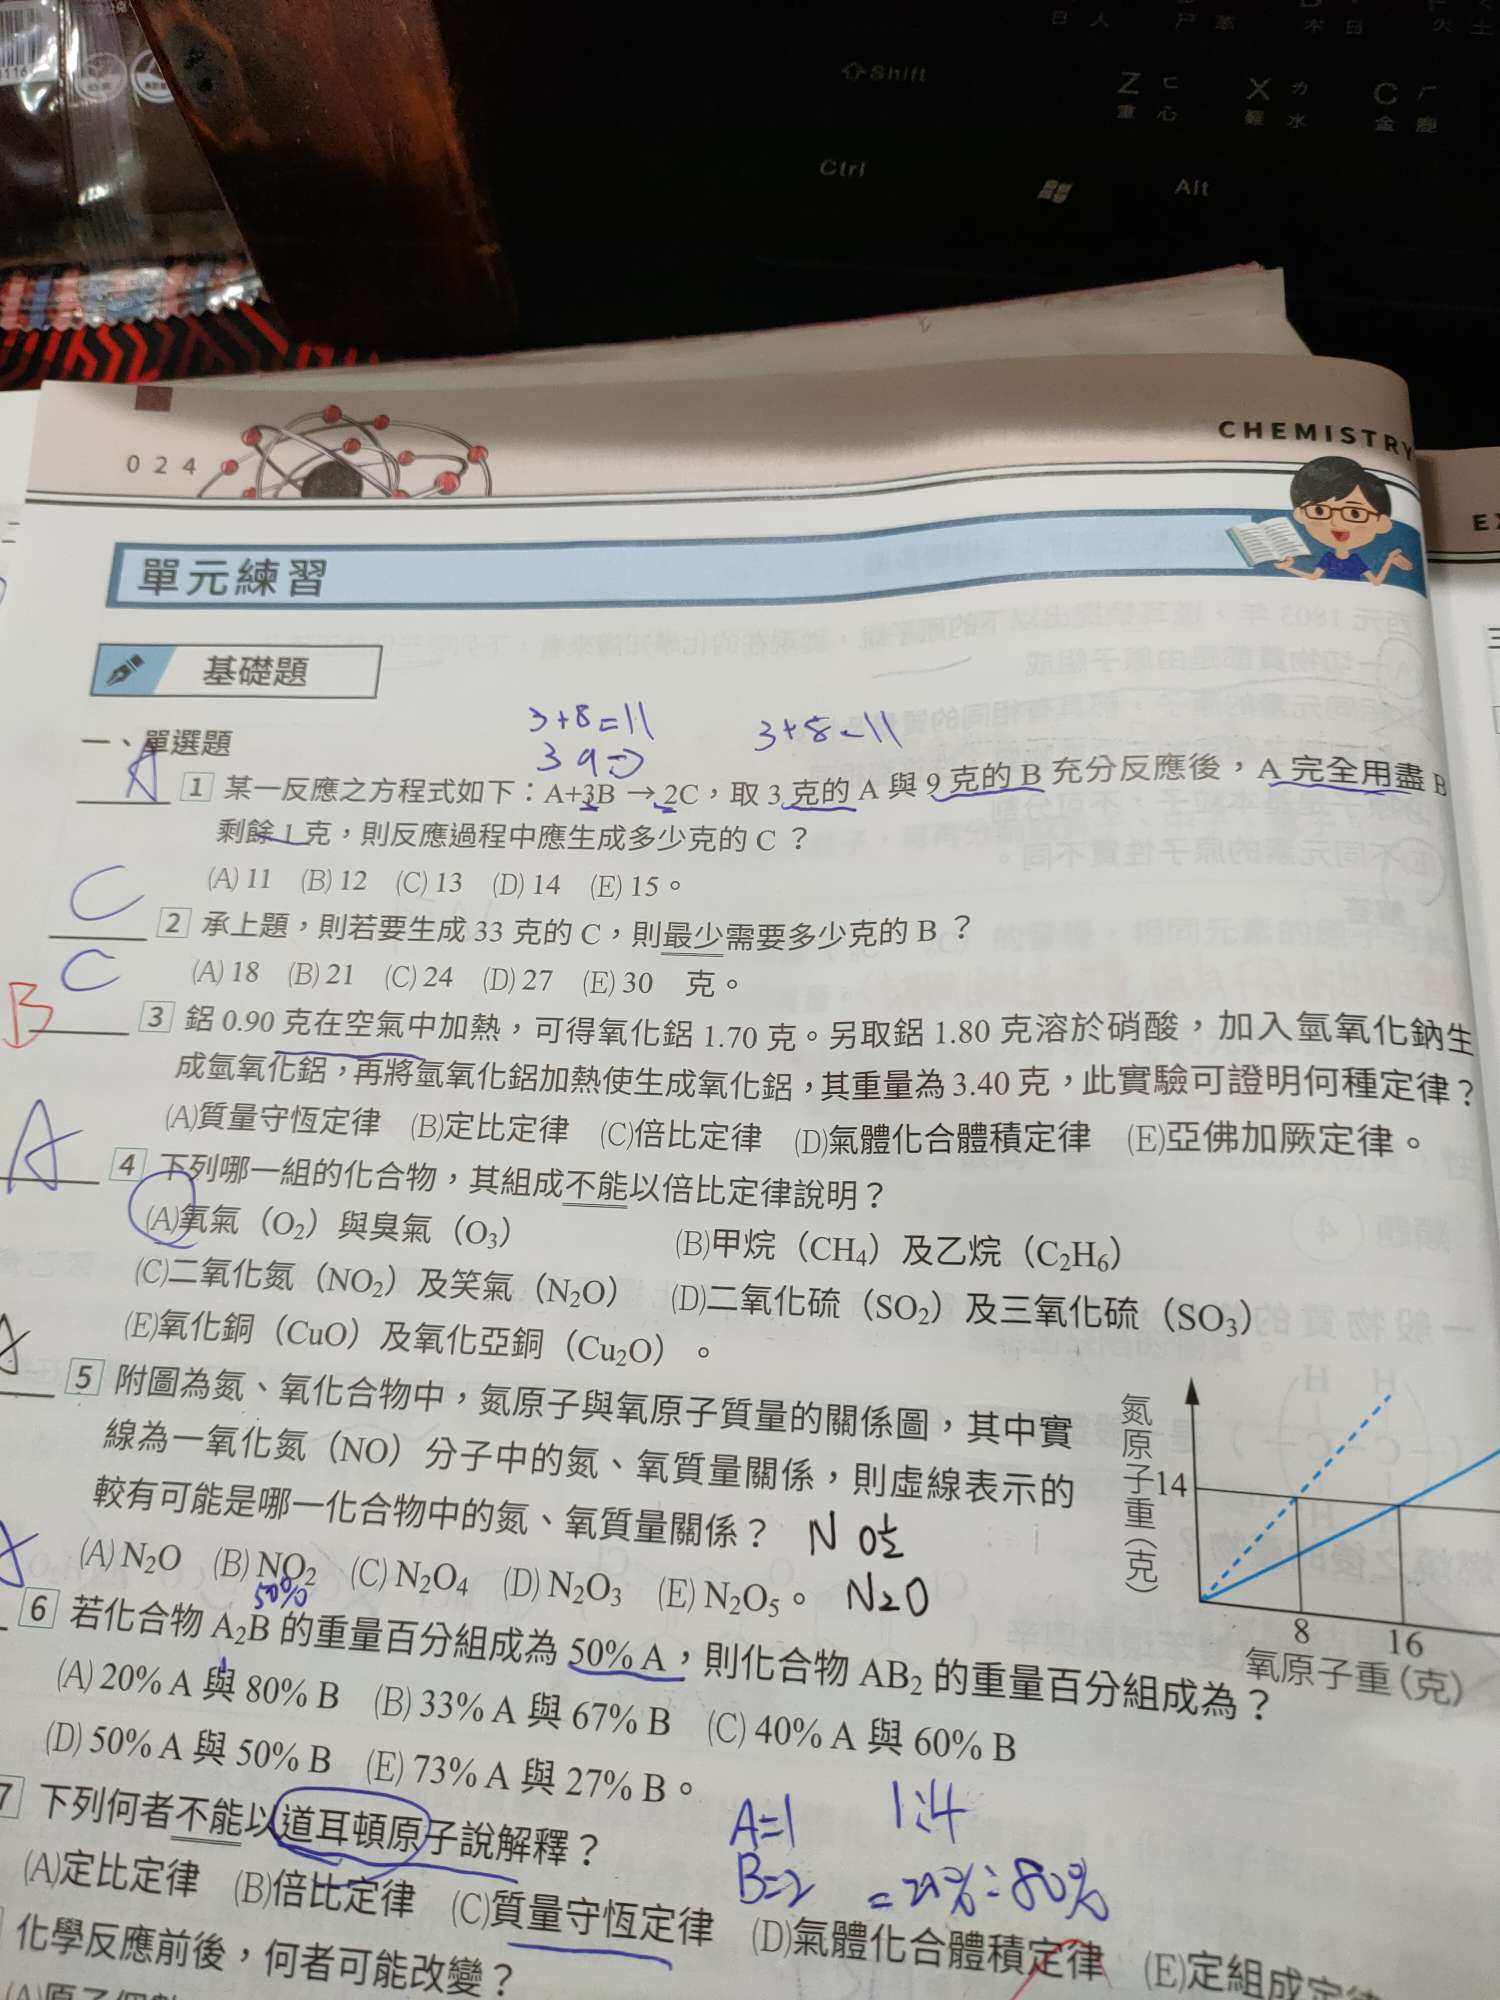 Shift
Z ㄈ X ㄌ C ㄏ
重 心 難 水 金 鹿
Ctrl Alt
024
CHEMISTRY
單元練習
基礎題
3+8=11
3+8=11
3 9
一、單選題
A 1 某一反應之方程式如下：A+3B→2C，取 3 克的 A 與 9 克的 B 充分反應後，A 完全用盡 B
剩餘 1 克，則反應過程中應生成多少克的 C？
(A) 11 (B) 12 (C) 13 (D) 14 (E) 15。
C 2 承上題，則若要生成 33 克的 C，則最少需要多少克的 B？
(A) 18 (B) 21 (C) 24 (D) 27 (E) 30 克。
C
B 3 鋁 0.90 克在空氣中加熱，可得氧化鋁 1.70 克。另取鋁 1.80 克溶於硝酸，加入氫氧化鈉生
成氫氧化鋁，再將氫氧化鋁加熱使生成氧化鋁，其重量為 3.40 克，此實驗可證明何種定律？
(A)質量守恆定律 (B)定比定律 (C)倍比定律 (D)氣體化合體積定律 (E)亞佛加厥定律。
A 4 下列哪一組的化合物，其組成不能以倍比定律說明？
(A)氧氣（O₂）與臭氧（O₃） (B)甲烷（CH₄）及乙烷（C₂H₆）
(C)二氧化氮（NO₂）及笑氣（N₂O） (D)二氧化硫（SO₂）及三氧化硫（SO₃）
(E)氧化銅（CuO）及氧化亞銅（Cu₂O）。
A 5 附圖為氮、氧化合物中，氮原子與氧原子質量的關係圖，其中實
線為一氧化氮（NO）分子中的氮、氧質量關係，則虛線表示的
較有可能是哪一化合物中的氮、氧質量關係？
N O½
(A) N₂O (B) NO₂ (C) N₂O₄ (D) N₂O₃ (E) N₂O₅。
N₂O
氮原子重（克）
14
8 16
氧原子重（克）
50%
6 若化合物 A₂B 的重量百分組成為 50% A，則化合物 AB₂ 的重量百分組成為？
(A) 20% A 與 80% B (B) 33% A 與 67% B (C) 40% A 與 60% B
(D) 50% A 與 50% B (E) 73% A 與 27% B。
A=1 1:4
B=2 =20%:80%
7 下列何者不能以道耳頓原子說解釋？
(A)定比定律 (B)倍比定律 (C)質量守恆定律 (D)氣體化合體積定律 (E)定組成定律
化學反應前後，何者可能改變？